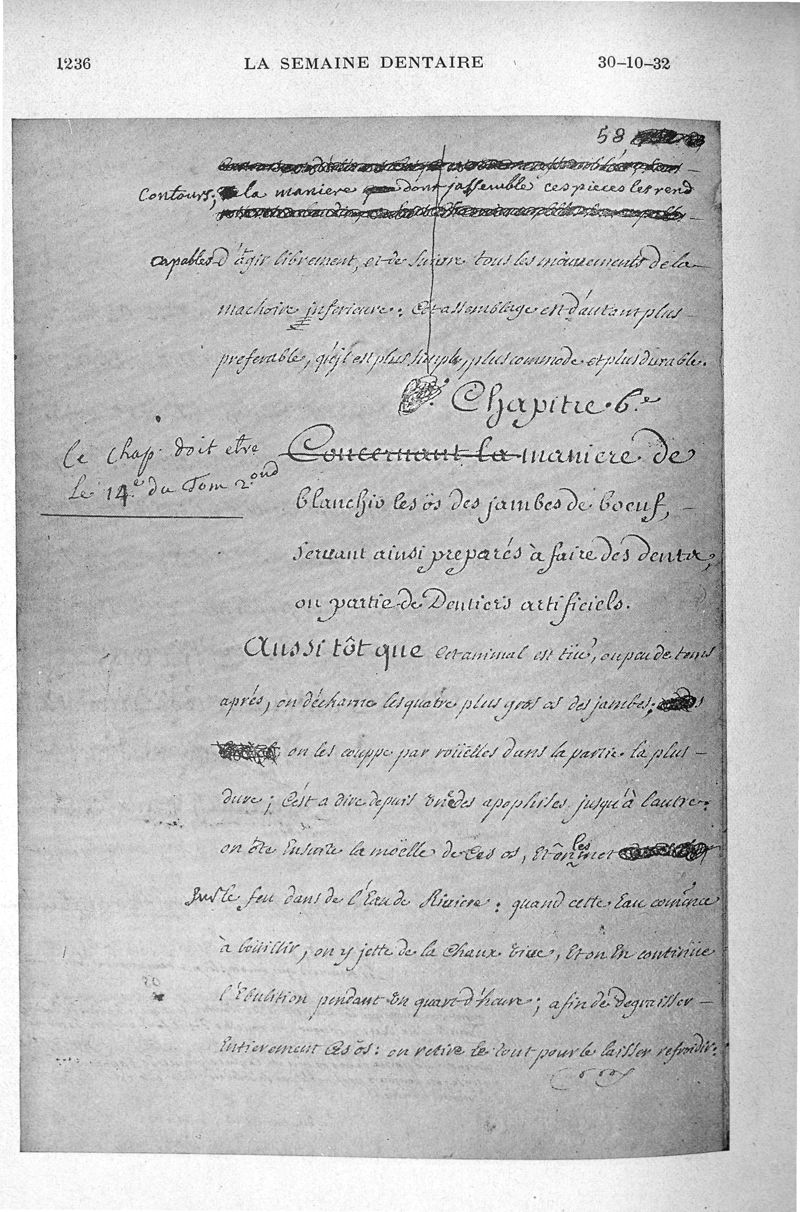 1236 LA SEMAINE DENTAIRE 30-10-32
58
Contours; la maniere dont j'assemble ces pieces les rend
capables d'agir librement, et de suivre tous les mouvements de la
machoire inferieure: Cet assemblage est d'autant plus
preferable, qu'il est plus simple, plus commode et plus durable.
Chapitre 6.e
Ce Chap. doit etre
Le 14.e du Tom 2.ond
Concernant la maniere de
blanchir les os des jambes de boeuf,
servant ainsi preparés à faire des dents,
ou partie de Dentiers artificiels.
Aussitôt que Cet animal est tüé, ou peu de tems
aprés, on décharne les quatre plus gros os des jambes;
on les couppe par roüelles dans la partie la plus
dure; C'est a dire depuis une des apophises jusqu'à l'autre.
on ôte Ensuite la moëlle de Ces os, Et on les met
sur le feu dans de l'Eau de Riviere: quand cette Eau comence
à boüillir, on y jette de la Chaux vive, Et on En continüe
l'Ebulition pendant un quart d'heure; afin de degraisser
Entierement Ces os: on retire le tout pour le laisser refroidir.